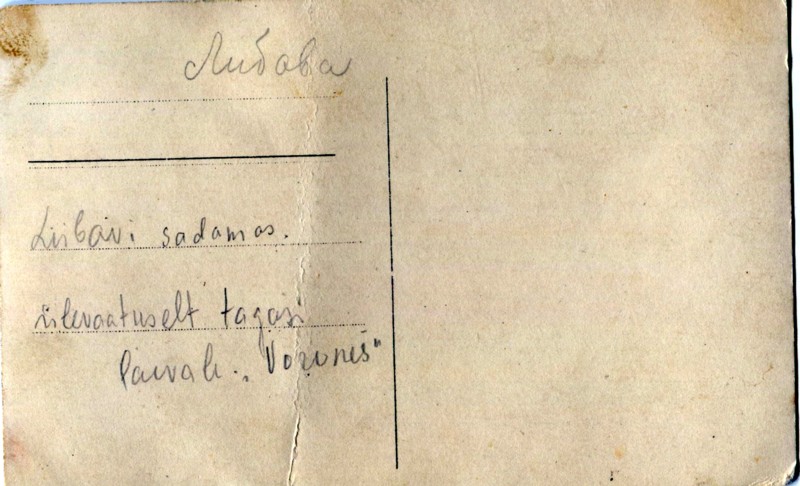 Либава
Liibavi sadamas.
ülevaatuselt tagasi
Päevali. „Voronež"